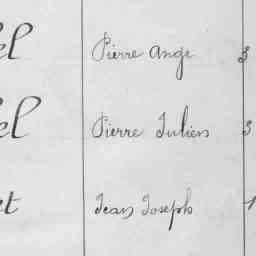 el Pierre Ange 3
el Pierre Julien 3
et Jean Joseph 1